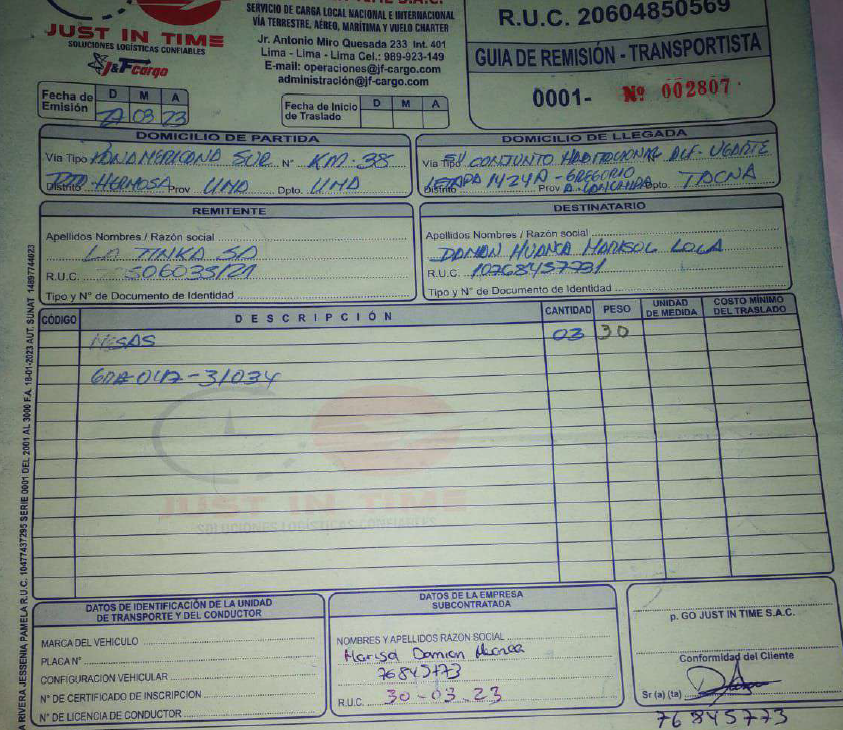 SERVICIO DE CARGA LOCAL NACIONAL E INTERNACIONAL
VÍA TERRESTRE, AÉREO, MARÍTIMA Y VUELO CHARTER
JUST IN TIME
SOLUCIONES LOGÍSTICAS CONFIABLES
J&F cargo
Jr. Antonio Miro Quesada 233 Int. 401
Lima - Lima - Lima Cel.: 989-923-149
E-mail: operaciones@jf-cargo.com
administración@jf-cargo.com
R.U.C. 20604850569
GUIA DE REMISIÓN - TRANSPORTISTA
0001- Nº 002807
Fecha de Emisión D M A
03 23
Fecha de Inicio de Traslado D M A
DOMICILIO DE PARTIDA
Vía Tipo PANAMERICANA SUR Nº KM-38
Distrito HERMOSA Prov LIMA Dpto. LIMA
DOMICILIO DE LLEGADA
Vía Tipo CONJUNTO HABITACIONAL ALF. UGARTE
I ETAPA 1424A - GREGORIO
Distrito Prov Dpto. TACNA
REMITENTE
Apellidos Nombres / Razón social
LA TINKA SA
R.U.C.
Tipo y Nº de Documento de Identidad
DESTINATARIO
Apellidos Nombres / Razón social
DAMIAN HUANCA MARISOL LOLA
R.U.C. 10768457731
Tipo y Nº de Documento de Identidad
CÓDIGO DESCRIPCIÓN CANTIDAD PESO UNIDAD DE MEDIDA COSTO MÍNIMO DEL TRASLADO
MESAS 03 30
31034
JUST IN TIME
SOLUCIONES LOGÍSTICAS CONFIABLES
A RIVERA JESSENIA PAMELA R.U.C. 10477437295 SERIE 0001 DEL 2001 AL 3000 F.A. 18-01-2023 AUT. SUNAT 14897744023
DATOS DE IDENTIFICACIÓN DE LA UNIDAD
DE TRANSPORTE Y DEL CONDUCTOR
MARCA DEL VEHICULO
PLACA Nº
CONFIGURACIÓN VEHICULAR
N° DE CERTIFICADO DE INSCRIPCION
N° DE LICENCIA DE CONDUCTOR
DATOS DE LA EMPRESA
SUBCONTRATADA
NOMBRES Y APELLIDOS RAZÓN SOCIAL
Marisa Damian Huanca
R.U.C. 30-03-23
p. GO JUST IN TIME S.A.C.
Conformidad del Cliente
Sr (a) (ta)
76845773